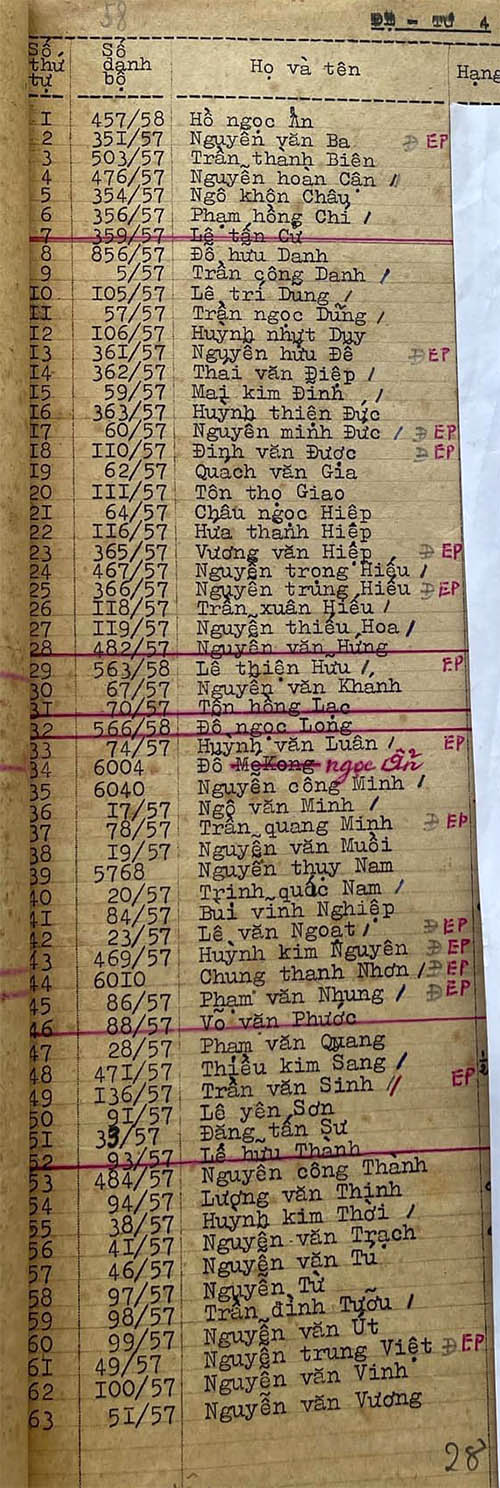 58
ĐỆ - TỨ 4
Số thứ tự Số danh bộ Họ và tên Hạng
I 457/58 Hồ ngọc Ẩn
2 35I/57 Nguyễn văn Ba Đ EP
3 503/57 Trần thanh Biên
4 476/57 Nguyễn hoàn Cân /
5 354/57 Ngô khôn Châu
6 356/57 Phạm hồng Chí /
7 359/57 Lê tấn Cử
8 856/57 Đỗ hữu Danh
9 5/57 Trần công Danh /
IO IO5/57 Lê trí Dũng /
II 57/57 Trần ngọc Dũng /
I2 IO6/57 Huỳnh nhựt Duy
I3 36I/57 Nguyễn hữu Đề Đ EP
I4 362/57 Thái văn Điệp /
I5 59/57 Mai kim Đỉnh /
I6 363/57 Huỳnh thiện Đức
I7 60/57 Nguyễn minh Đức / Đ EP
I8 IIO/57 Đinh văn Được Đ EP
I9 62/57 Quách văn Gia
20 III/57 Tôn thọ Giao
2I 64/57 Châu ngọc Hiệp
22 II6/57 Hứa thanh Hiệp
23 365/57 Vương văn Hiệp Đ EP
24 467/57 Nguyễn trọng Hiếu /
25 366/57 Nguyễn trung Hiếu Đ EP
26 II8/57 Trần xuân Hiếu /
27 II9/57 Nguyễn thiếu Hoa /
28 482/57 Nguyễn văn Hưng
29 563/58 Lê thiện Hữu / EP
30 67/57 Nguyễn văn Khanh
3I 70/57 Tôn hồng Lạc
32 566/58 Đỗ ngọc Long
33 74/57 Huỳnh văn Luân / EP
34 6004 Đỗ MeKong ngọc Ẩn
35 6040 Nguyễn công Minh /
36 I7/57 Ngô văn Minh /
37 78/57 Trần quang Minh Đ EP
38 I9/57 Nguyễn văn Muôi
39 5768 Nguyễn thụy Nam
40 20/57 Trịnh quốc Nam /
4I 84/57 Bùi vinh Nghiệp
42 23/57 Lê văn Ngoạt / Đ EP
43 469/57 Huỳnh kim Nguyên Đ EP
44 60IO Chung thanh Nhơn / Đ EP
45 86/57 Phạm văn Nhung / Đ EP
46 88/57 Võ văn Phước
47 28/57 Phạm văn Quang
48 47I/57 Thiều kim Sang /
49 I36/57 Trần văn Sinh // EP
50 9I/57 Lê yên Sơn
5I 33/57 Đặng tấn Sự
52 93/57 Lê hữu Thành
53 484/57 Nguyễn công Thành
54 94/57 Lượng văn Thịnh
55 38/57 Huỳnh kim Thời /
56 4I/57 Nguyễn văn Trạch
57 46/57 Nguyễn văn Tư
58 97/57 Nguyễn Từ
59 98/57 Trần đình Tựu /
60 99/57 Nguyễn văn Út
6I 49/57 Nguyễn trung Việt Đ EP
62 IOO/57 Nguyễn văn Vinh
63 5I/57 Nguyễn văn Vương
28